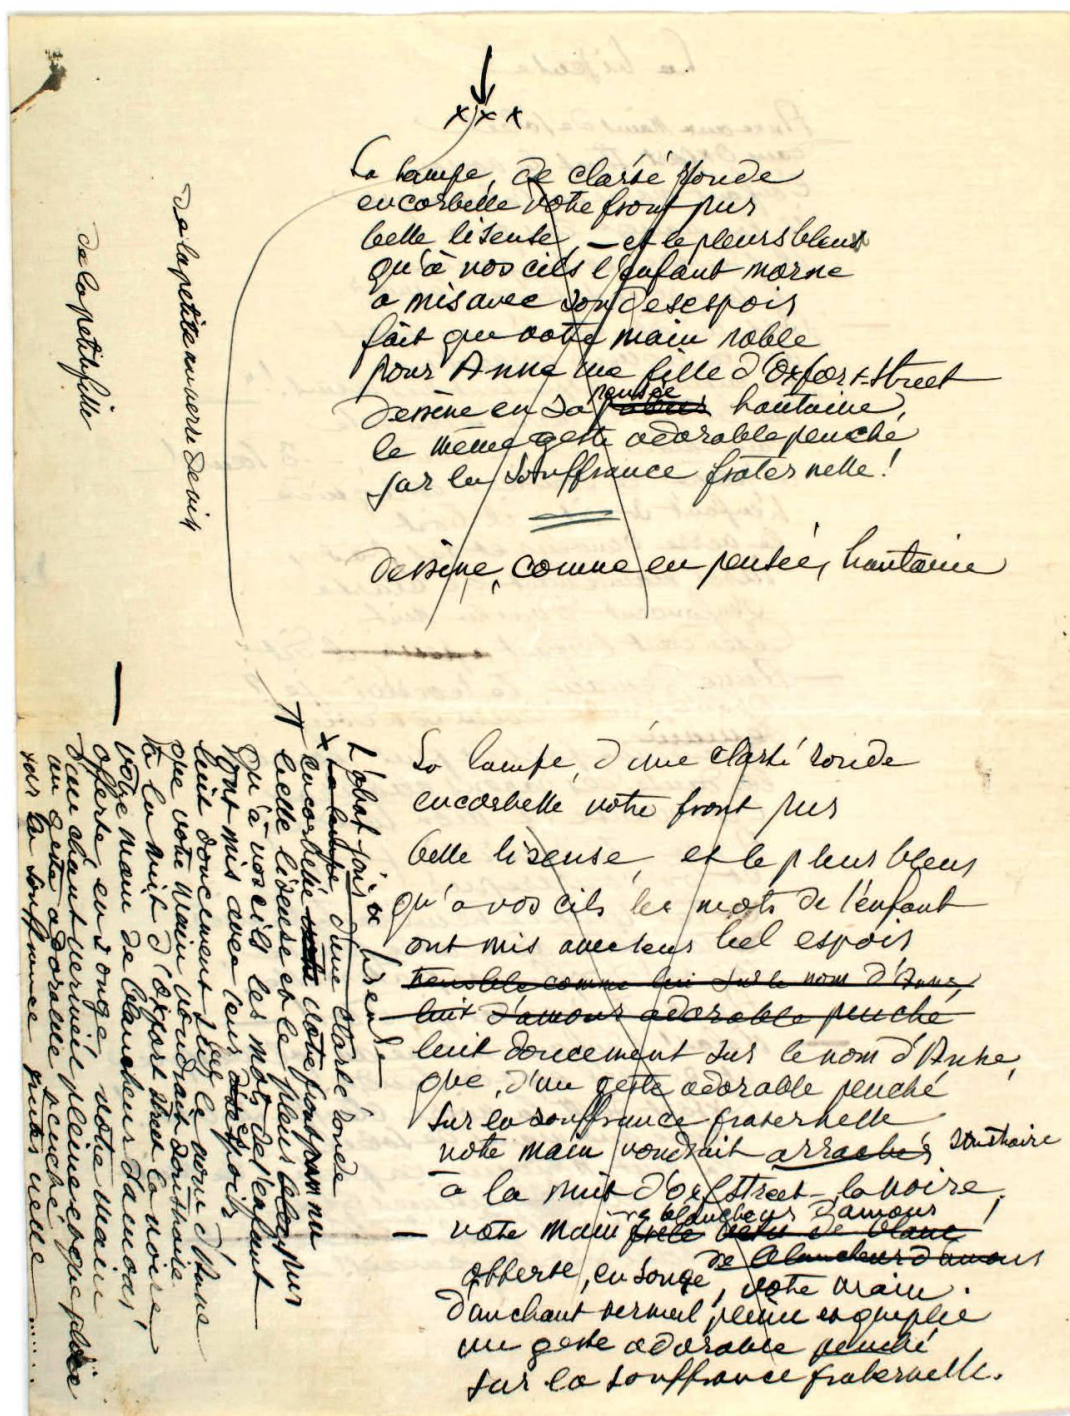 x x x
La lampe, de clarté ronde
encorbelle votre front pur
belle liseuse, — et le pleurs bleus
qu'à vos cils l'enfant morne
a mis avec son desespoir
fait que votre main noble
pour Anne une fille d'Oxfort-Street
dessine en sa pensée hautaine,
le même geste adorable penché
sur la souffrance fraternelle !
dessine, comme en pensée, hautaine
de la petite
de la petite fille
La lampe, d'une clarté ronde
encorbelle votre front pur
belle liseuse, et le pleur bleus
qu'à vos cils les mots de l'enfant
ont mis avec leur bel espoir
tremble comme lui sur le nom d'Anne,
luit d'amour adorable penché
luit doucement sur le nom d'Anne,
que, d'un geste adorable penché
sur la souffrance fraternelle
votre main voudrait arracher soustraire
à la nuit d'oxfstreet - la noire,
— votre main frêle vetue de blanc
blancheurs d'amour !
de blancheur d'amour
offerte, en songe, votre main.
d'un chant vermeil, pleine
un geste adorable penché
sur la souffrance fraternelle.
L'abat-jour liseuse
x La lampe d'une clarté ronde
encorbelle votre front
belle liseuse et le pleur pur
Qu'à vos cils les mots de l'enfant
ont mis avec leur espoir
luit doucement sur le nom d'Anne
que votre main voudrait soustraire
à la nuit d'Oxfort street la noire,
votre main de blancheur d'amour,
offerte, en songe, votre main
d'un chant vermeil pleine
un geste adorable penché
sur la souffrance fraternelle .....